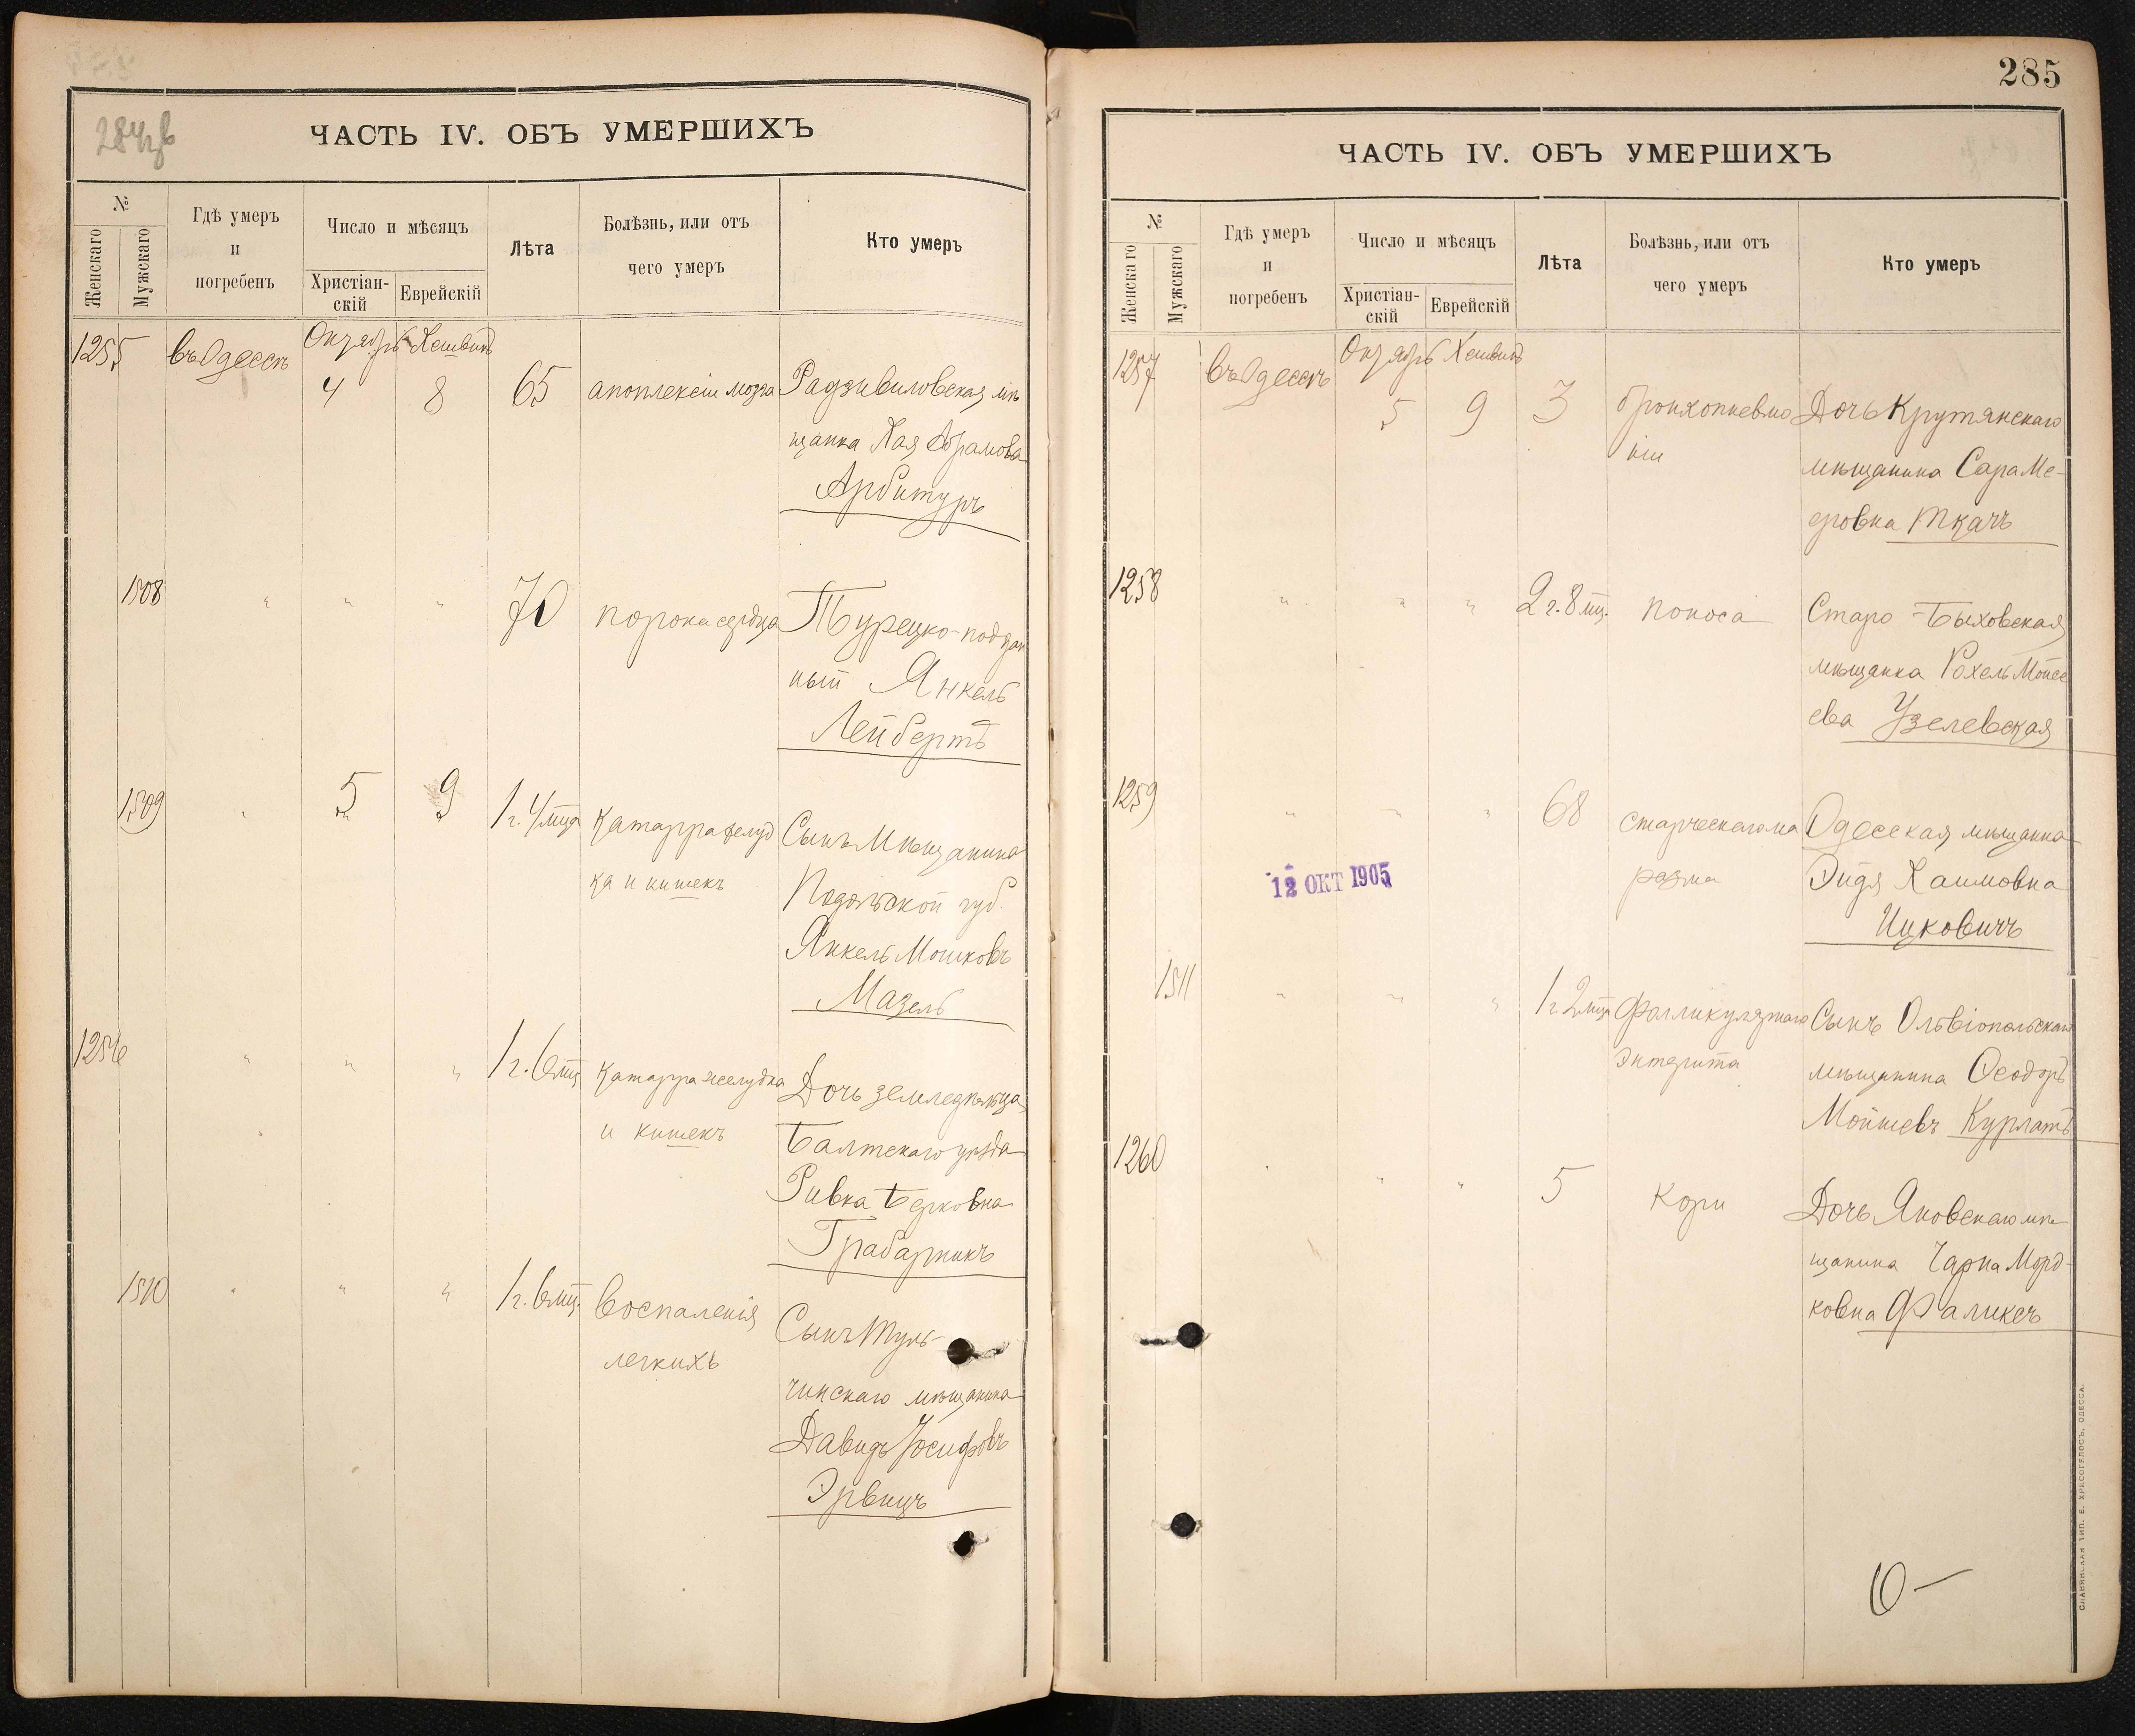 284об
ЧАСТЬ IV. ОБЪ УМЕРШИХЪ
№
Женскаго
Мужскаго
Гдѣ умеръ
и
погребенъ
Число и мѣсяцъ
Христіан-
скій
Еврейскій
Лѣта
Болѣзнь, или отъ
чего умеръ
Кто умеръ
1255 въ Одессѣ Октябрь Хешвинъ
4 8 65 апоплексіи мозга Радзивиловская мѣ
щанка Хая Абрамова
Арбитуръ
1508 " " " 70 порока сердца Турецко-поддан
ный Янкель
Лейбертъ
1509 " 5 9 1 г. 4 мца катарра желуд Сынъ Мѣщанина
ка и кишекъ Подольской губ.
Янкель Мошковъ
Мазель
1256 " " " 1 г. 6 мц катарра желудка Дочь земледѣльца
и кишекъ Балтскаго уѣзда
Ривка Берковна
Грабарникъ
1510 " " " 1 г. 6 мц. воспаленія Сынъ Туль-
легкихъ чинскаго мѣщанина
Давидъ Іосифовъ
Эрвицъ
285
ЧАСТЬ IV. ОБЪ УМЕРШИХЪ
№
Женскаго
Мужскаго
Гдѣ умеръ
и
погребенъ
Число и мѣсяцъ
Христіан-
скій
Еврейскій
Лѣта
Болѣзнь, или отъ
чего умеръ
Кто умеръ
1257 въ Одессѣ Октябрь Хешвинъ
5 9 3 бронхопневмо Дочь Крутянскаго
ніи мѣщанина Сара Ме-
еровна Ткачъ
1258 " " " 2 г. 8 мц. поноса Старо-Быховская
мѣщанка Рохель Мойсе
ева Узелевская
1259 " " " 68 старческаго ма Одесская мѣщанка
разма Эйдя Хаимовна
Ицковичъ
12 ОКТ 1905
1511 " " " 1 г 2 мца Фолликулярнаго Сынъ Ольвіопольскаго
энтерита мѣщанина Ѳеодоръ
Мойшевъ Курлатъ
1260 " " " 5 кори Дочь Яновскаго мѣ
щанина Чарна Морд-
ковна Фаликсъ
СЛАВЯНСКАЯ ТИП. Е. ХРИСОГЕЛОСЪ, ОДЕССА.